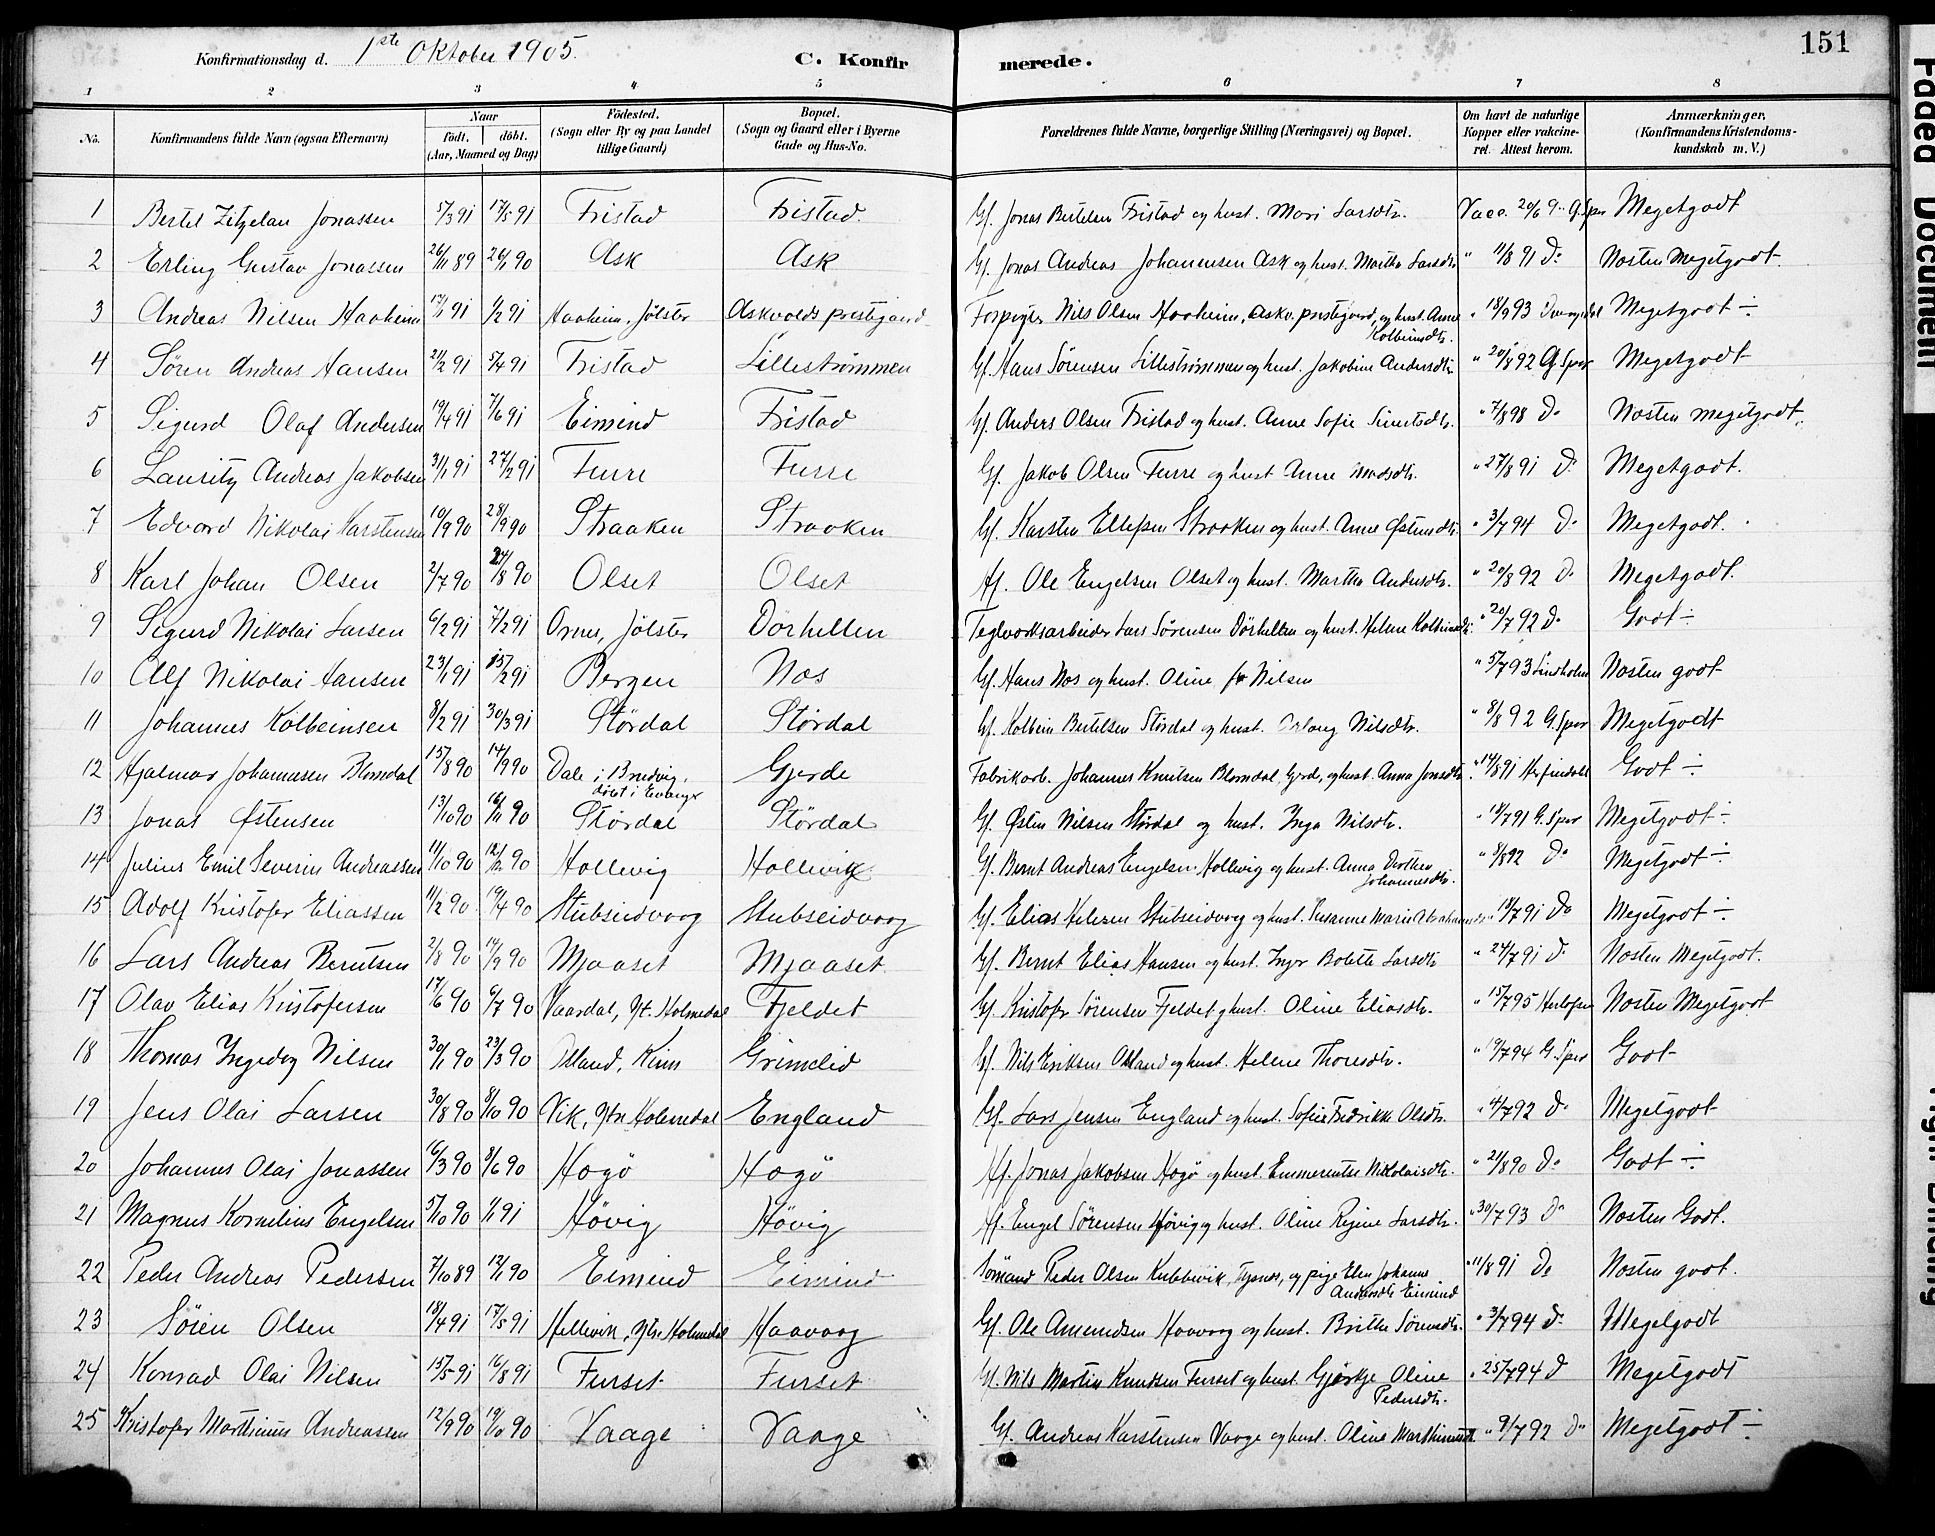 151
Konfirmationsdag d. 1ste Oktober 1905. C. Konfirmerede.
1 2 3 4 5 6 7 8
No. Konfirmandens fulde Navn (ogsaa Efternavn) Naar født. døbt. (Aar, Maaned og Dag) Fødested. (Sogn eller By og paa Landet tillige Gaard) Bopæl. (Sogn og Gaard eller i Byerne Gade og Hus-No. Forældrenes fulde Navne, borgerlige Stilling (Næringsvei) og Bopæl. Om havt de naturlige Kopper eller vakcineret. Attest herom. Anmærkninger, (Konfirmandens Kristendomskundskab m. V.)
1 Bertel Zitzelan Jonassen 5/3 91 17/5 91 Fristad Fristad. Gf. Jonas Bertelsen Fristad og hust. Mari Larsdtr. Vacc. 20/6 G. Spor Megetgodt
2 Erling Gustav Jonassen 26/11 89 26/1 90 Ask Ask Gf. Jonas Andreas Johannensen Ask og hust. Martha Larsdtr " 11/8 91 Do Næsten Megetgodt.
3 Andreas Nilsen Haaheim 17/1 91 1/2 91 Haaheim, Jølster Askvolds prestegaard Forpagter Nils Olsen Haaheim, Askv. prestegaard, og hust. Anne Kolbeinsdtr. " 18/9 93 Megetgodt ÷
4 Søren Andreas Hansen 21/2 91 5/4 91 Fristad Lillestrømmen Gf. Hans Sørensen Lillestrømmen og hust. Jakobine Andersdtr " 20/8 92 G. Spor Megetgodt
5 Sigurd Olaf Andersen 19/4 91 7/6 91 Eimind Fristad Gf. Anders Olsen Fristad og hust. Anne Sofie " 7/8 98 Do Næsten megetgodt.
6 Lauritz Andreas Jakobsen 31/1 91 27/2 91 Furre Furre Gf. Jakob Olsen Furre og hust Anne Madsdtr. " 27/8 91 Do Megetgodt.
7 Edvard Nikolai Karstensen 10/9 90 28/9 90 Straaken Straaken Gf. Karsten Ellefsen Straaken og hust. Anne Østensdtr. " 3/7 94 Do Megetgodt.
8 Karl Johan Olsen 2/7 90 24/8 90 Olset Olset Hf. Ole Engelsen Olset og hust. Martha Andersdtr. " 20/8 92 Do Megetgodt.
9 Sigurd Nikolai Larsen 6/2 91 7/2 91 Ornes, Jølster Dørhellen Teglverksarbeider Lars Sørensen Dørhellen og hust. Helene Kolbeinsdtr. " 20/7 92 Do Godt ÷
10 Alf Nikolai Hansen 23/1 91 15/2 91 Bergen Nos Gf. Hans Nos og hust. Oline f. Nilsen " 5/7 93 Lindholm Næsten godt
11 Johannes Kolbeinsen 8/2 91 30/3 91 Stördal Stördal Gf. Kolbein Bertelsen Stördal og hust. Nilsdtr. " 8/8 92 G. Spor Megetgodt
12 Hjalmar Johannesen Blomdal 15/8 90 14/9 90 Dale i Bruvig, døbt i Evanger Gjerde Fabrikarb. Johannes Knutsen Blomdal, Gjerde, og hust. Anna Jonsdtr. " 14/8 91 Herfindal Godt ÷
13 Jonas Østensen 13/10 90 16/11 90 Stördal Stördal Gf. Østen Nilsen Stördal og hust. Inga Nilsdtr. " 18/7 91 G. Spor Megetgodt ÷
14 Julius Emil Severin Andreassen 11/10 90 12/12 90 Hollevig Hollevik Gf. Bernt Andreas Engelsen Hollevig og hust. Anna Dorthea Johannesdtr. " 3/8 92 Do Megetgodt ÷
15 Adolf Kristofer Eliassen 11/2 90 19/4 90 Stubseidvaag Stubseidvaag Gf. Elias Stubseidvaag og hust. Susanne Marie " 18/7 91 Do Megetgodt ÷
16 Lars Andreas Berntsen 2/8 90 14/9 90 Mjaaset Mjaaset Gf. Bernt Elias Hansen og hust. Inger Bolette Larsdtr " 24/7 91 Do Næsten Megetgodt.
17 Olav Elias Kristofersen 17/6 90 6/7 90 Vaardal, Yt. Holmedal Fjeldet Gf. Kristofer Sørensen Fjeldet og hust. Oline Eliasdtr. " 15/7 95 Herlofsen Næsten Megetgodt
18 Thomas Ingedag Nilsen 30/1 90 23/3 90 Kinn Grimelid Gf. Nils Eriksen og hust. Helene Thoresdtr. " 19/7 94 G. Spor Godt
19 Jens Olai Larsen 30/8 90 8/10 90 Vik, Ytre Holmedal England Gf. Lars Jensen England og hust. Sofie Fredrikke Olsdtr. " 4/7 92 Do Megetgodt
20 Johannes Olai Jonassen 16/3 90 8/6 90 Hogö Hogö Hf. Jonas Jakobsen Hogö og hust. Emmerentse Nikolaisdtr. " 21/8 90 Do Godt ÷
21 Magnus Kornelius Engelsen 5/10 90 1/1 91 Høvig Høvig Hf. Engel Sørensen Høvig og hust. Oline Regine Larsdtr. " 30/7 93 Do Næsten Godt.
22 Peder Andreas Pedersen 7/10 89 12/1 90 Eimind Eimind Sømand Peder Olsen Kubbevik, Tysnes, og pige Elen Johanne Andersdtr Eimind " 11/8 91 Do Næsten godt.
23 Søren Olsen 18/4 91 17/5 91 Hellevik, Ytre Holmedal Haavaag Gf. Ole Amundsen Haavaag og hust. Brithe Sørensdtr. " 3/7 94 Do Megetgodt
24 Konrad Olai Nilsen 15/5 91 16/8 91 Furset Furset Gf. Nils Martin Knudsen Furset og hust. Gjertje Oline Pedersdtr. " 25/7 94 D Megetgodt
25 Kristofer Marthinus Andreassen 12/9 90 19/10 90 Vaage Vaage Gf. Andreas Karstensen Vaage og hust. Oline Marthinusdtr. " 9/7 92 Do Megetgodt ÷
Faded Document
Tight Binding